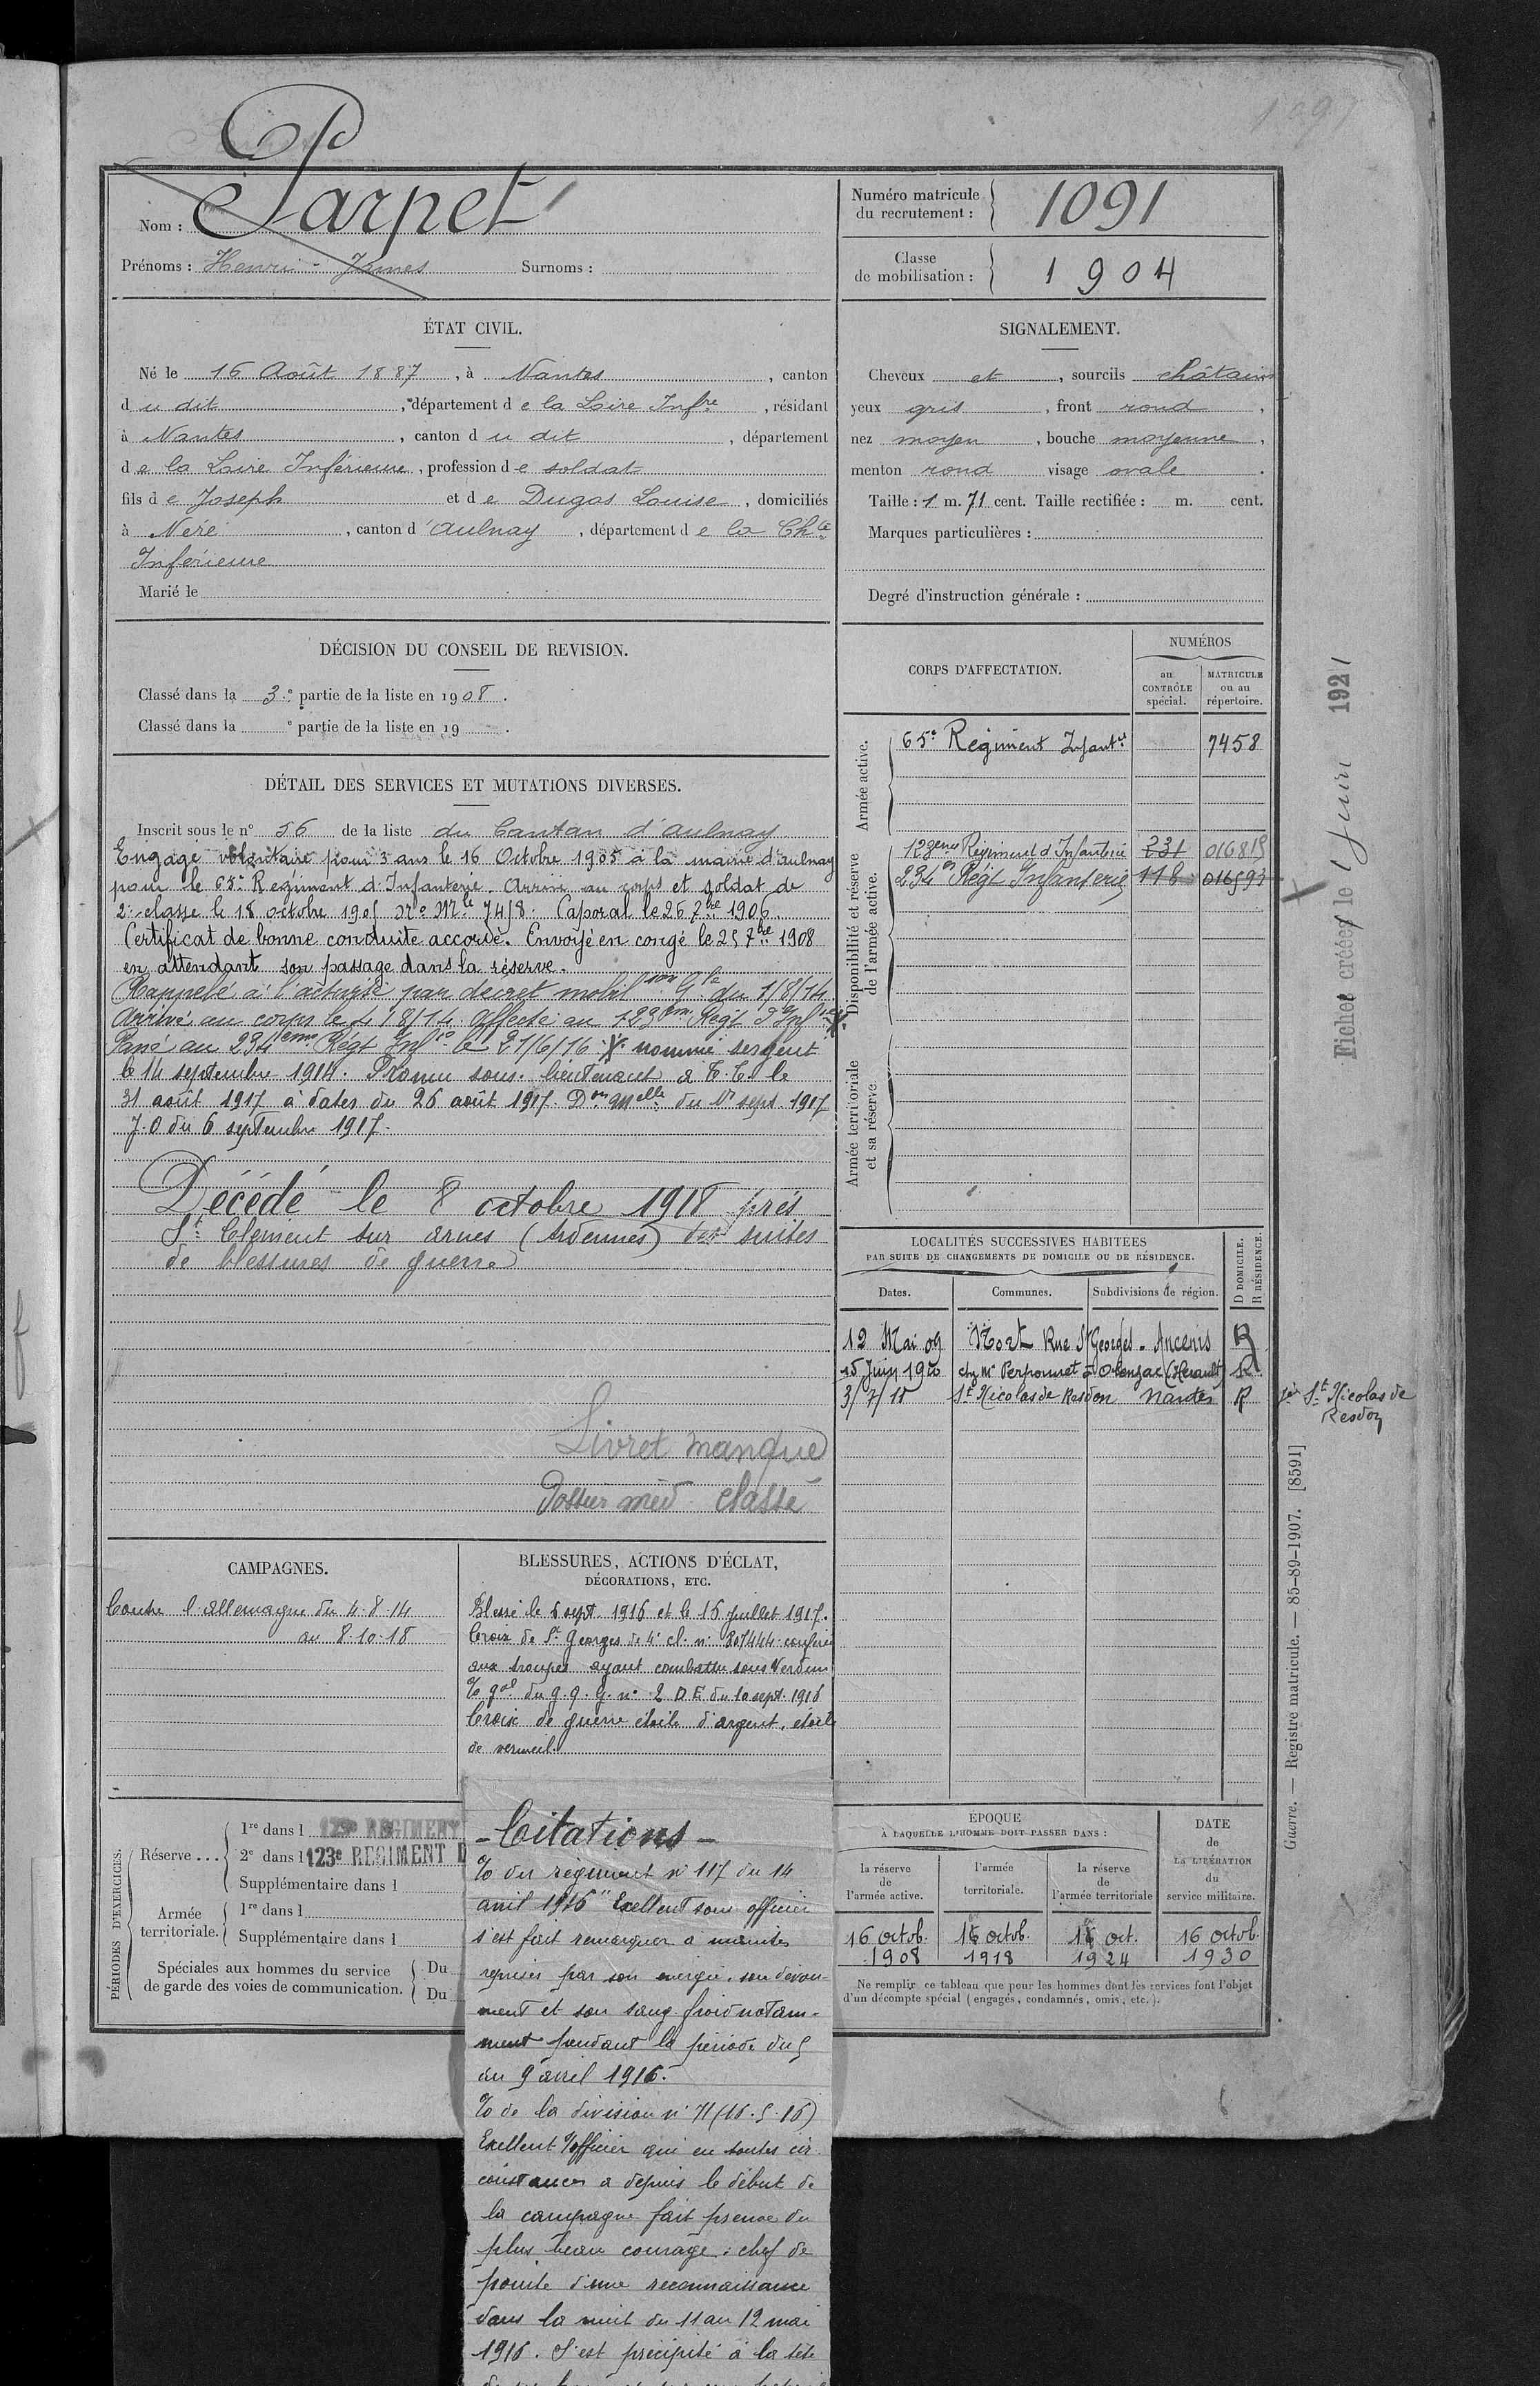 1091
Nom : Parpet
Prénoms : Henri - James Surnoms :
Numéro matricule du recrutement : 1091
Classe de mobilisation : 1904
ÉTAT CIVIL.
Né le 16 Août 1887, à Nantes, canton
du dit, département de la Loire Infre, résidant
à Nantes, canton du dit, département
de la Loire Inférieure, profession de soldat
fils de Joseph et de Dugas Louise, domiciliés
à Néré, canton d'Aulnay, département de la Chte
Inférieure
Marié le
SIGNALEMENT.
Cheveux et, sourcils châtains
yeux gris, front rond,
nez moyen, bouche moyenne,
menton rond visage ovale.
Taille : 1 m. 71 cent. Taille rectifiée : m. cent.
Marques particulières :
Degré d'instruction générale :
DÉCISION DU CONSEIL DE REVISION.
Classé dans la 3e partie de la liste en 1908.
Classé dans la e partie de la liste en 19 .
DÉTAIL DES SERVICES ET MUTATIONS DIVERSES.
Inscrit sous le n° 56 de la liste du Canton d'Aulnay
Engagé volontaire pour 3 ans le 16 Octobre 1905 à la mairie d'aulnay
pour le 65e Régiment d'Infanterie. Arrivé au corps et soldat de
2e classe le 18 octobre 1905 No Mle 7458. Caporal le 26 7bre 1906.
Certificat de bonne conduite accordé. Envoyé en congé le 25 7bre 1908
en attendant son passage dans la réserve.
Rappelé à l'activité par decret mobilson Gle du 1/8/14
Arrivé au corps le 4/8/14. Affecté au 123em Régt d'Infie X.
Passé au 234eme Régt Infie le 21/6/16. X nommé sergent
le 14 septembre 1914. Promu sous-lieutenant à T.T. le
31 août 1917 à dater du 26 août 1917. Don Mlle du 1r sept. 1917
J.O du 6 septembre 1917.
Décédé le 8 octobre 1918 près
St Clément sur arnes (Ardennes) des suites
de blessures de guerre
Livret manque
Dossier méd. classé
CORPS D'AFFECTATION.
NUMÉROS
au CONTRÔLE spécial.
MATRICULE ou au répertoire.
Armée active.
65e Régiment Infantie 7458
Disponibilité et réserve de l'armée active.
123eme Régiment d'Infanterie 231 016815
234e Régt Infanterie 118 016593
Armée territoriale et sa réserve
LOCALITÉS SUCCESSIVES HABITÉES
PAR SUITE DE CHANGEMENTS DE DOMICILE OU DE RÉSIDENCE.
Dates. Communes. Subdivisions de région. D DOMICILE. R RÉSIDENCE.
12 Mai 09 Nort Rue St Georges - Ancenis R
15 Juin 1910 chez Mr Perponnet à Olonzac (Hérault) R
3/7/11 St Nicolas de Resdon Nantes R
St Nicolas de
Resdon
Fiches créées le 1 Juin 1921
Guerre. — Registre matricule. — 85-89-1907. [8591]
CAMPAGNES.
Contre l'allemagne du 4-8-14
au 8-10-18
BLESSURES, ACTIONS D'ÉCLAT,
DÉCORATIONS, ETC.
Blessé le 6 sept. 1916 et le 16 juillet 1917.
Croix de St Georges de 4e cl. n° 807444 conférée
aux troupes ayant combattu sous Verdun
% gal du G.Q.G. n° 2 D.E du 10 sept. 1916
Croix de guerre étoile d'argent, étoile
de vermeil.
PÉRIODES D'EXERCICES.
Réserve ... 1re dans l 123e REGIMENT
2e dans l 123e REGIMENT D
Supplémentaire dans l
Armée territoriale. 1re dans l
Supplémentaire dans l
Spéciales aux hommes du service
de garde des voies de communication.
Du
Du
- Citations -
% du régiment n° 117 du 14
avril 1916 "Exellent sous officier
s'est fait remarquer à maintes
reprises par son énergie, son dévou-
ment et son sang-froid notam-
ment pendant la période du 5
au 9 avril 1916.
% de la division n° 71 (16.5.16)
Exellent s/officier qui en toutes cir-
constances a depuis le début de
la campagne fait preuve du
plus beau courage : chef de
pointe d'une reconnaissance
dans la nuit du 11 au 12 mai
1916. S'est précipité à la tête
ÉPOQUE
À LAQUELLE L'HOMME DOIT PASSER DANS :
la réserve de l'armée active.
l'armée territoriale.
la réserve de l'armée territoriale
DATE de LA LIBÉRATION du service militaire.
16 octob. 1908
16 octob. 1918
16 oct. 1924
16 octob. 1930
Ne remplir ce tableau que pour les hommes dont les services font l'objet
d'un décompte spécial (engagés, condamnés, omis, etc.).